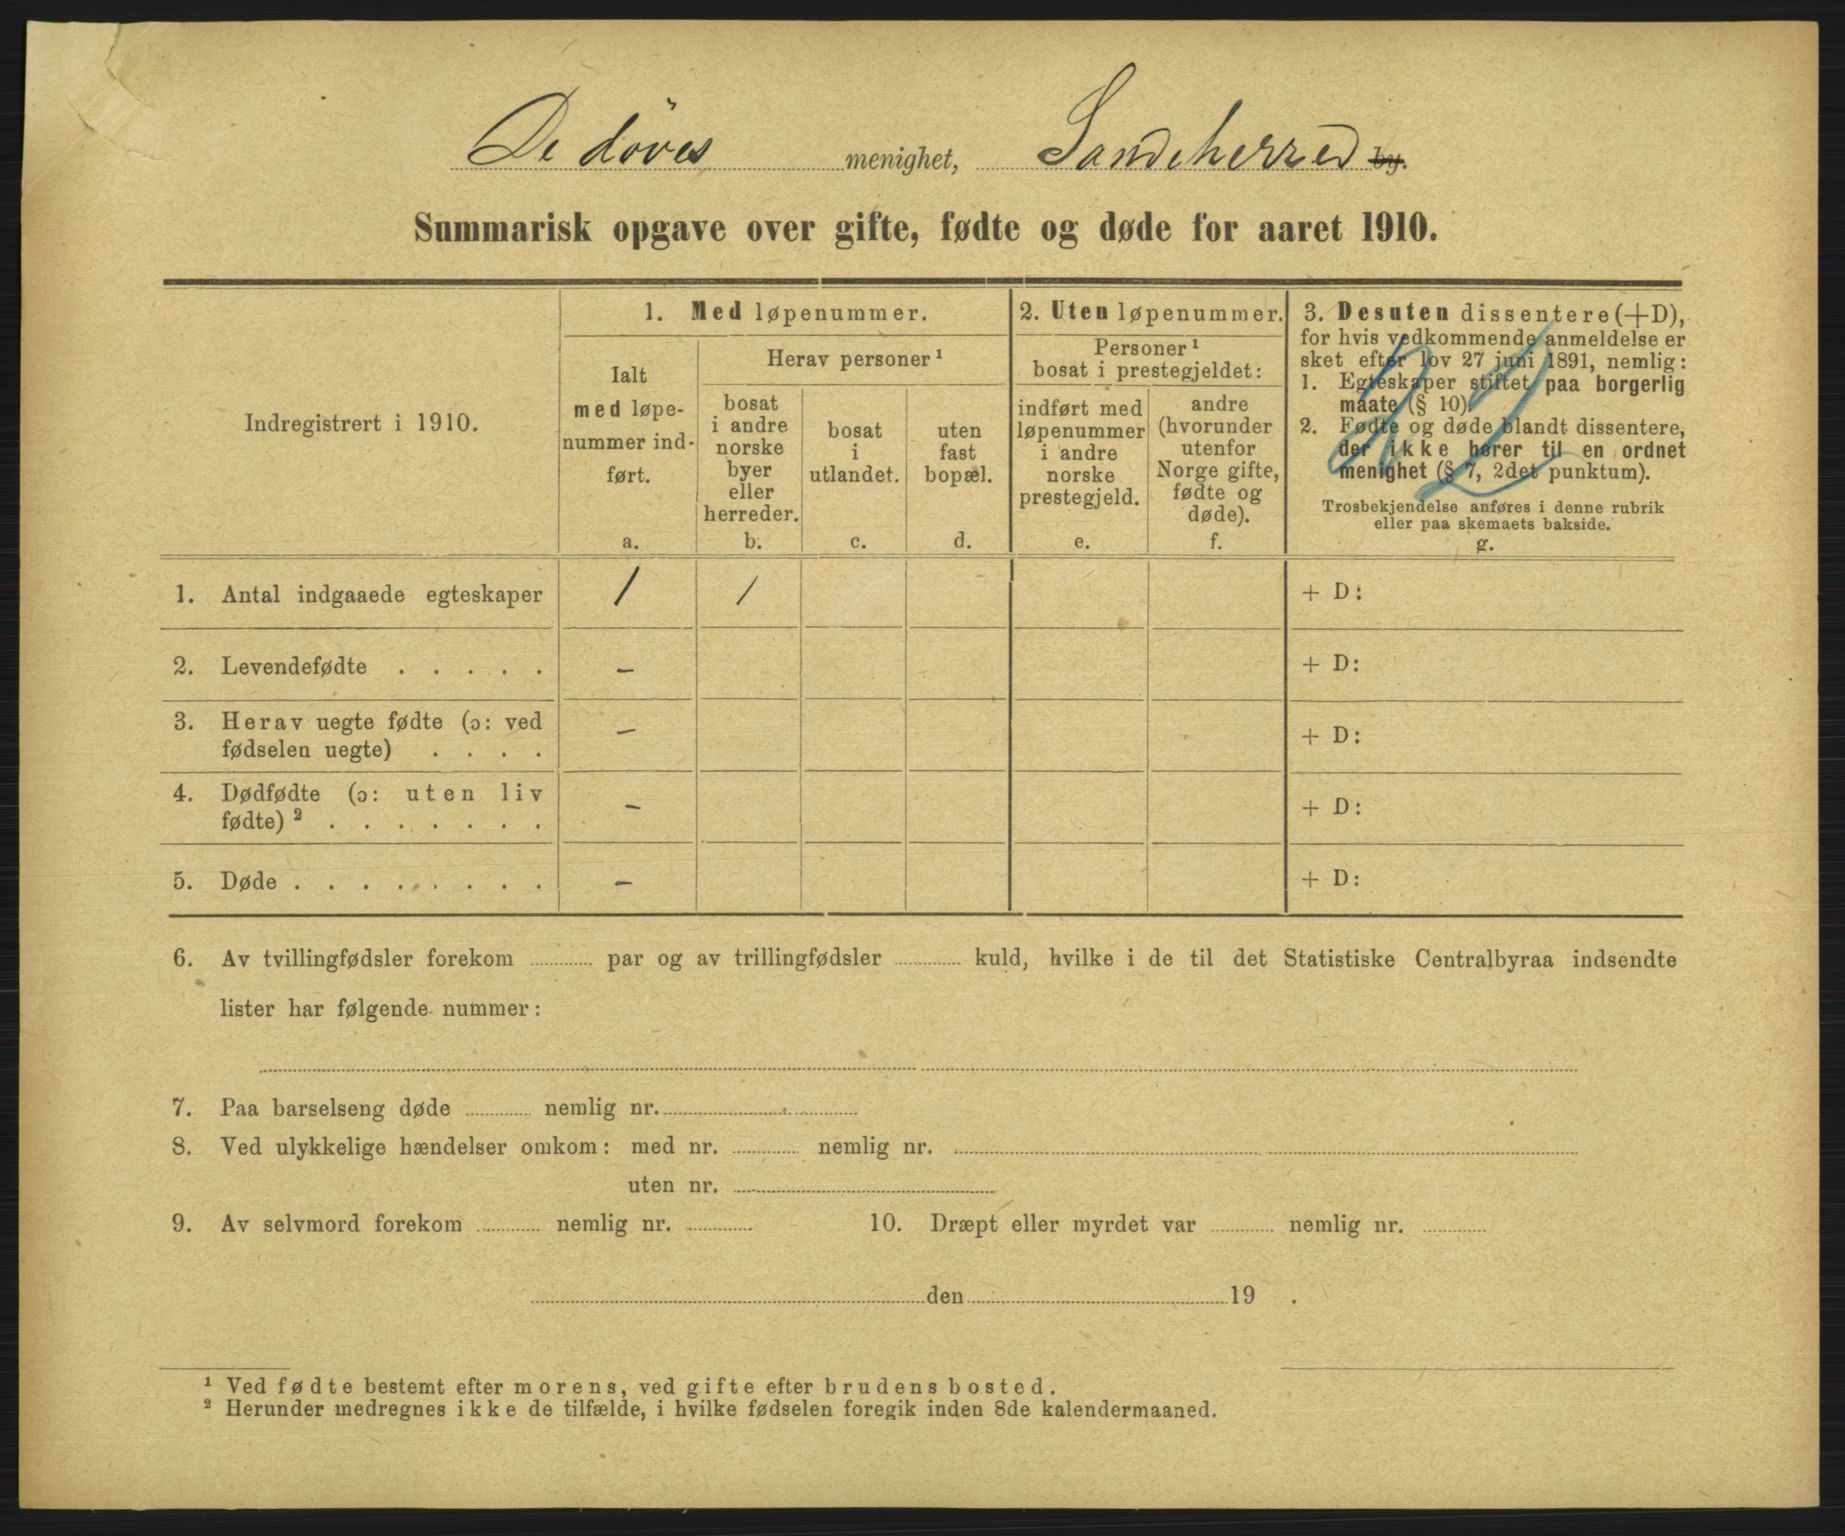 De döves menighet, Sandeherred by.
Summarisk opgave over gifte, fødte og døde for aaret 1910.
Indregistrert i 1910.
1. Med løpenummer.
Ialt
med løpe-
nummer ind-
ført.
a.
Herav personer ¹
bosat
i andre
norske
byer
eller
herreder.
b.
bosat
i
utlandet.
c.
uten
fast
bopæl.
d.
2. Uten løpenummer.
Personer ¹
bosat i prestegjeldet:
indført med
løpenummer
i andre
norske
prestegjeld.
e.
andre
(hvorunder
utenfor
Norge gifte,
fødte og
døde).
f.
3. Desuten dissentere (+D),
for hvis vedkommende anmeldelse er
sket efter lov 27 juni 1891, nemlig:
1. Egteskaper stiftet paa borgerlig
maate (§ 10).
2. Fødte og døde blandt dissentere,
der ikke hører til en ordnet
menighet (§ 7, 2det punktum).
Trosbekjendelse anføres i denne rubrik
eller paa skemaets bakside.
g.
1. Antal indgaaede egteskaper 1 1 + D:
2. Levendefødte . . . . . – + D:
3. Herav uegte fødte (ɔ: ved
fødselen uegte) . . . . – + D:
4. Dødfødte (ɔ: uten liv
fødte) ² . . . . . . . – + D:
5. Døde . . . . . . . . – + D:
6. Av tvillingfødsler forekom ............ par og av trillingfødsler ............ kuld, hvilke i de til det Statistiske Centralbyraa indsendte
lister har følgende nummer:
7. Paa barselseng døde ............ nemlig nr. ............
8. Ved ulykkelige hændelser omkom: med nr. ............ nemlig nr. ............
uten nr. ............
9. Av selvmord forekom ............ nemlig nr. ............ 10. Dræpt eller myrdet var ............ nemlig nr. ............
............ den ............ 19 .
¹ Ved fødte bestemt efter morens, ved gifte efter brudens bosted.
² Herunder medregnes ikke de tilfælde, i hvilke fødselen foregik inden 8de kalendermaaned.